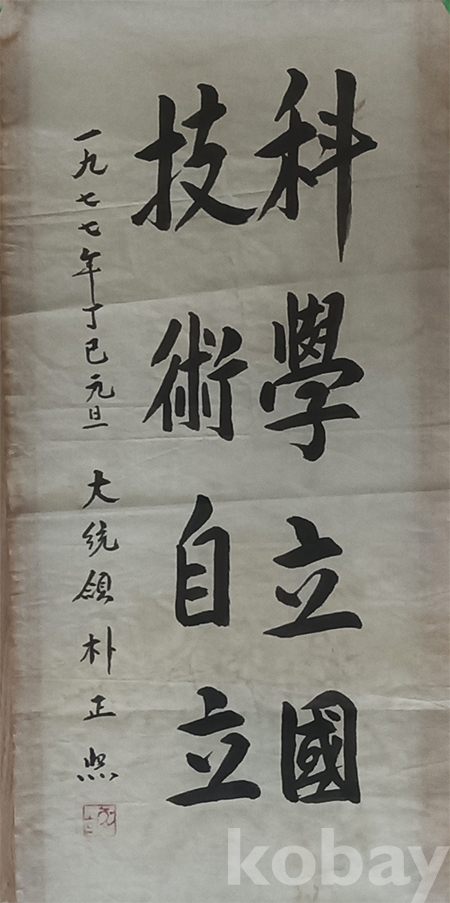 科學立國
技術自立
一九七七年丁巳元旦 大統領朴正熙
kobay